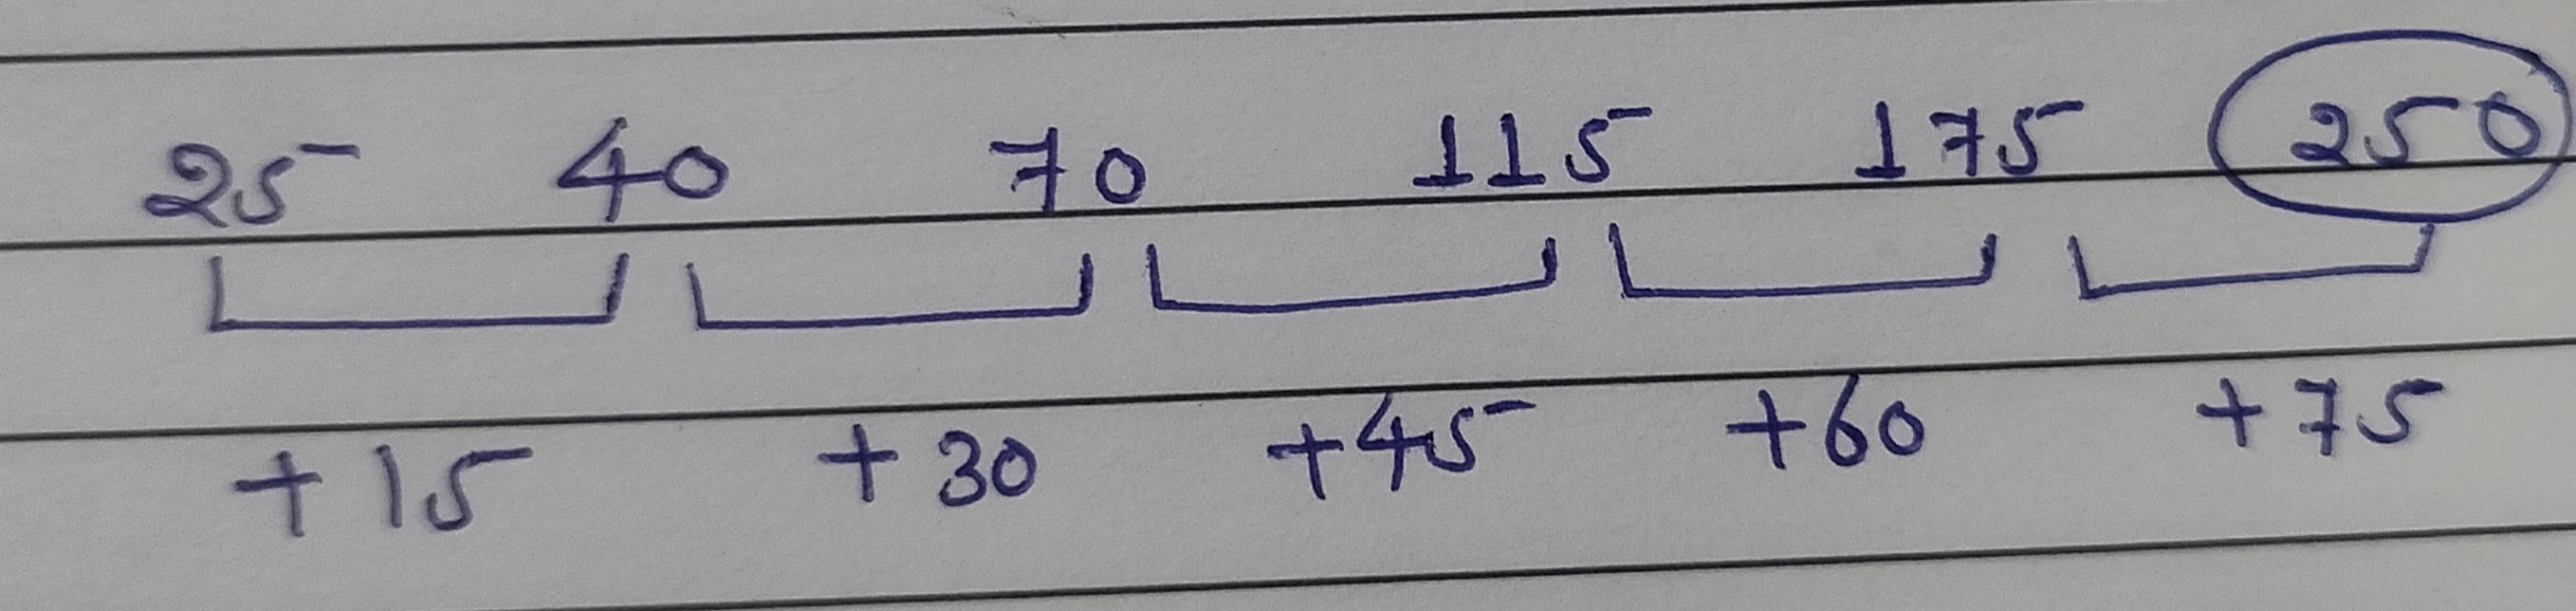 25 40 70 115 175 250
+15 +30 +45 +60 +75